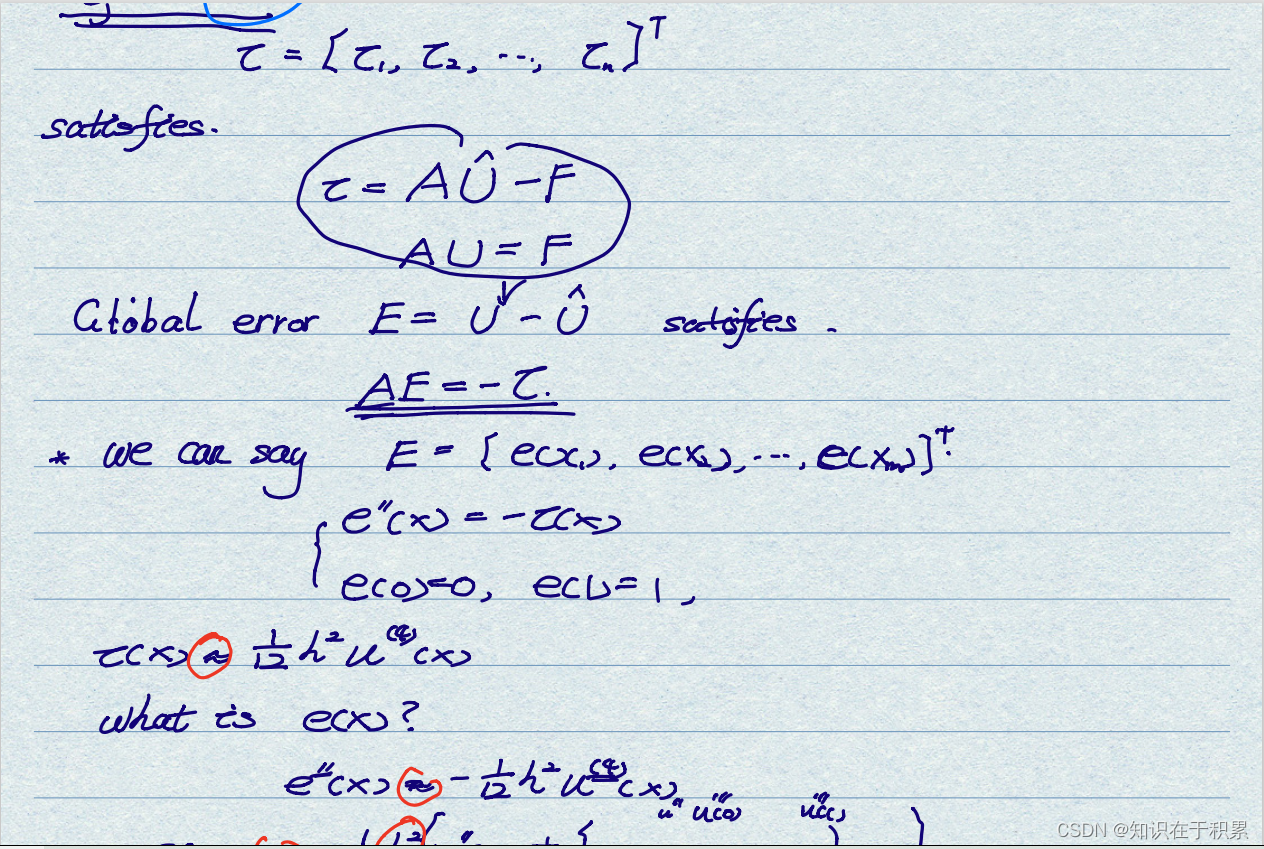 τ = [τ₁, τ₂, ⋯, τₙ]ᵀ
satisfies.
τ = AÛ − F
AU = F
Global error E = U − Û satisfies .
AE = − τ.
* we can say E = [e(x₁), e(x₂), ⋯, e(xₘ)]ᵀ.
e''(x) = − τ(x)
e(0)=0, e(1)=1,
τ(x) ≈ 1/12 h² u⁽⁴⁾(x)
what is e(x)?
e''(x) ≈ − 1/12 h² u⁽⁴⁾(x)
u'' u''(0) u''(1)
CSDN @知识在于积累